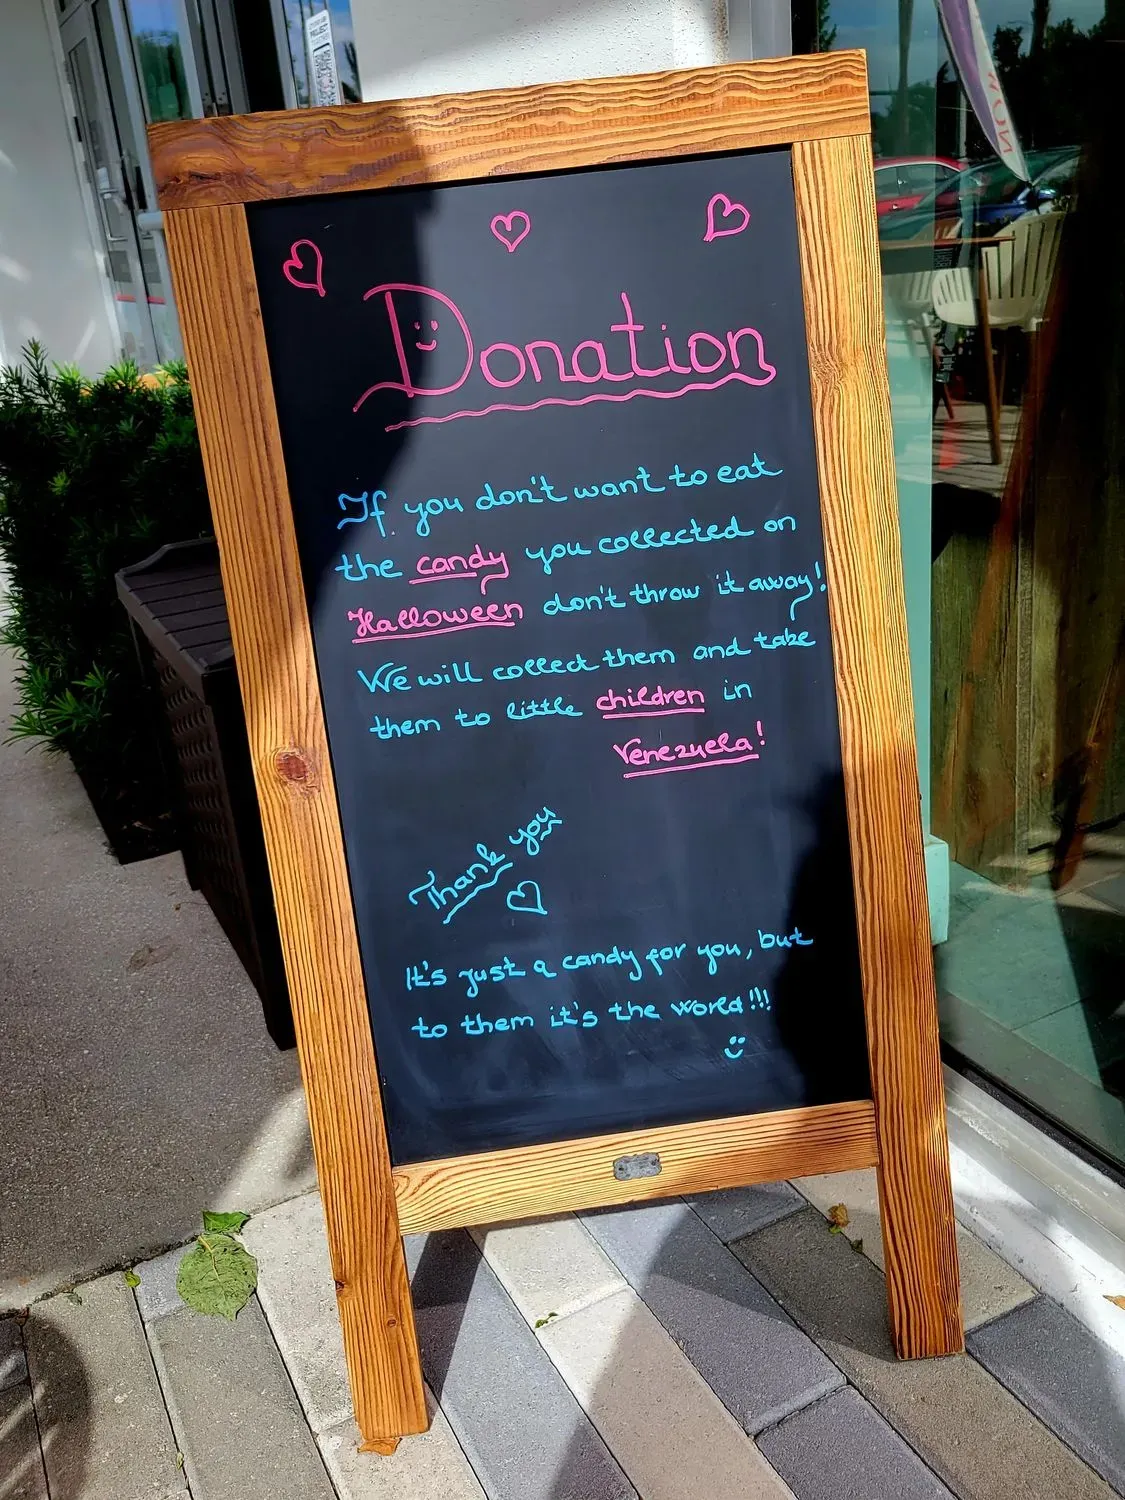 Donation
If you don't want to eat
the candy you collected on
Halloween don't throw it away!
We will collect them and take
them to little children in
Venezuela!
Thank you
It's just a candy for you, but
to them it's the world!!!
NOW